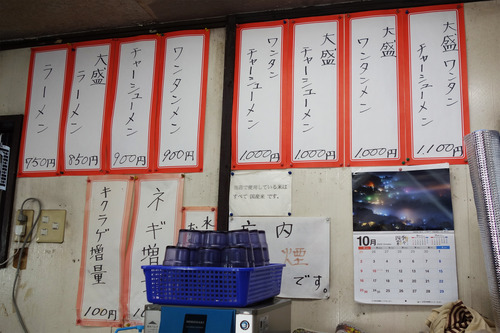 ラーメン
750円
大盛
ラーメン
850円
チャーシューメン
900円
ワンタンメン
900円
ワンタン
チャーシューメン
1000円
大盛
チャーシューメン
1000円
大盛
ワンタンメン
1000円
大盛ワンタン
チャーシューメン
1,100円
キクラゲ増量
100円
ネギ増
当店で使用している米は
すべて 国産米 です。
店内
煙
です。
10月